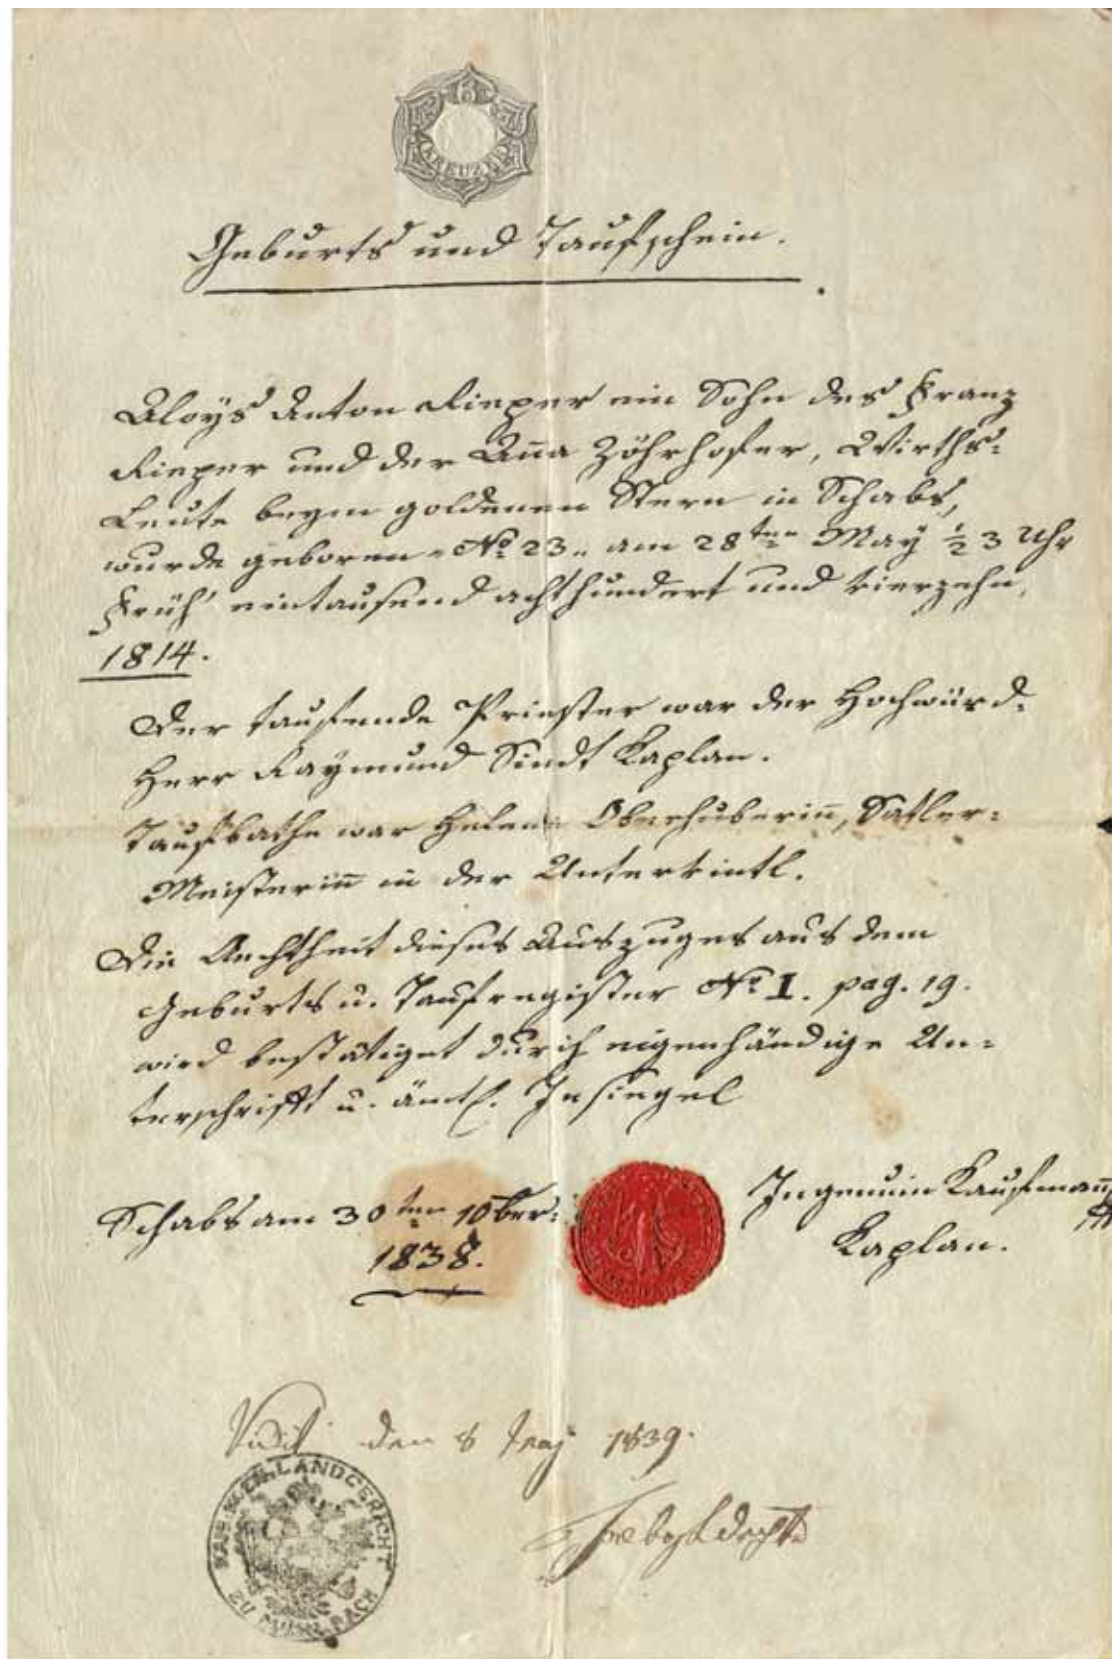 6
KREUZER
Geburts und Taufschein.
Aloys Anton Rieper ein Sohn des Franz
Rieper und der Aña Zöhrhofer, Wirths-
Leute beym goldenen Stern in Schabs,
wurde geboren "No 23" am 28ten May ½ 3 Uhr
Früh' eintausend achthundert und vierzehn,
1814.
Der taufende Priester war der Hochwürd.
Herr Raymund Sindt Kaplan.
Taufbathe war Helena Oberhuberin̄, Satler-
Meisterin̄ in der Untervintl.
Die Aechtheit dieses Auszuges aus dem
Geburts u. Taufregister No I. pag. 19.
wird bestätiget durch eigenhändige Un-
terschrift u. ämtl. Insiegel
Schabs am 30ten 10ber:
1838.
Ingenuin Kaufman̄
Kaplan.
Vidit den 8 1839.
KAIS. KÖN. LANDGERICHT
ZU MÜHLBACH